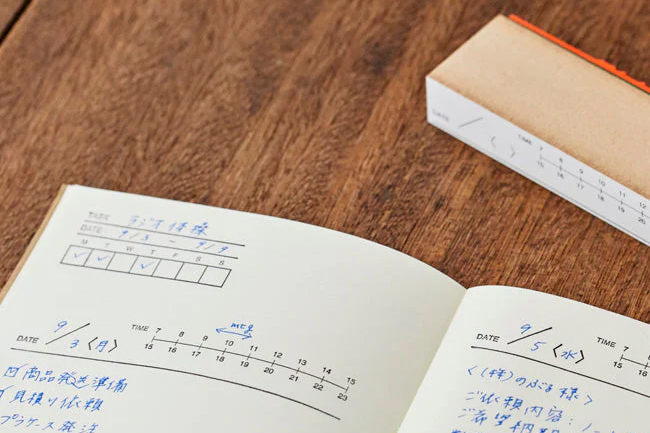 TASK ラジオ体操
DATE 9/3 〜 9/9
M T W T F S S
DATE 9/3 〈月〉
TIME 7 8 9 10 11 12 13 14 15
mtg
15 16 17 18 19 20 21 22 23
商品発送準備
見積り依頼
プラケース発注
DATE 9/5 〈水〉
TIME 7 8
15 16
<(株)のぶる様>
ご依頼内容:
ご希望納期
DATE / 〈 〉
TIME 7 8 9 10 11 12
15 16 17 18 19 20